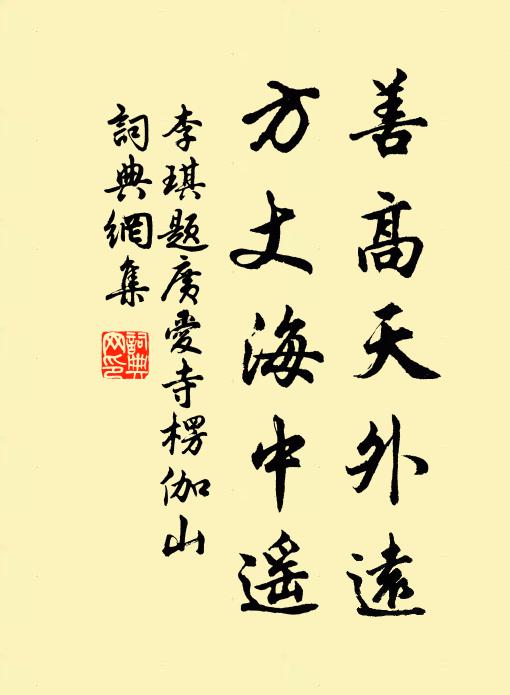 善高天外遠
方丈海中遥
李琪題廣愛寺楞伽山
詞典網集
詞典网印